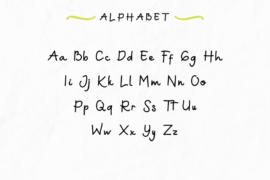 ALPHABET
Aa Bb Cc Dd Ee Ff Gg Hh
Ii Jj Kk Ll Mm Nn Oo
Pp Qq Rr Ss Tt Uu
Ww Xx Yy Zz